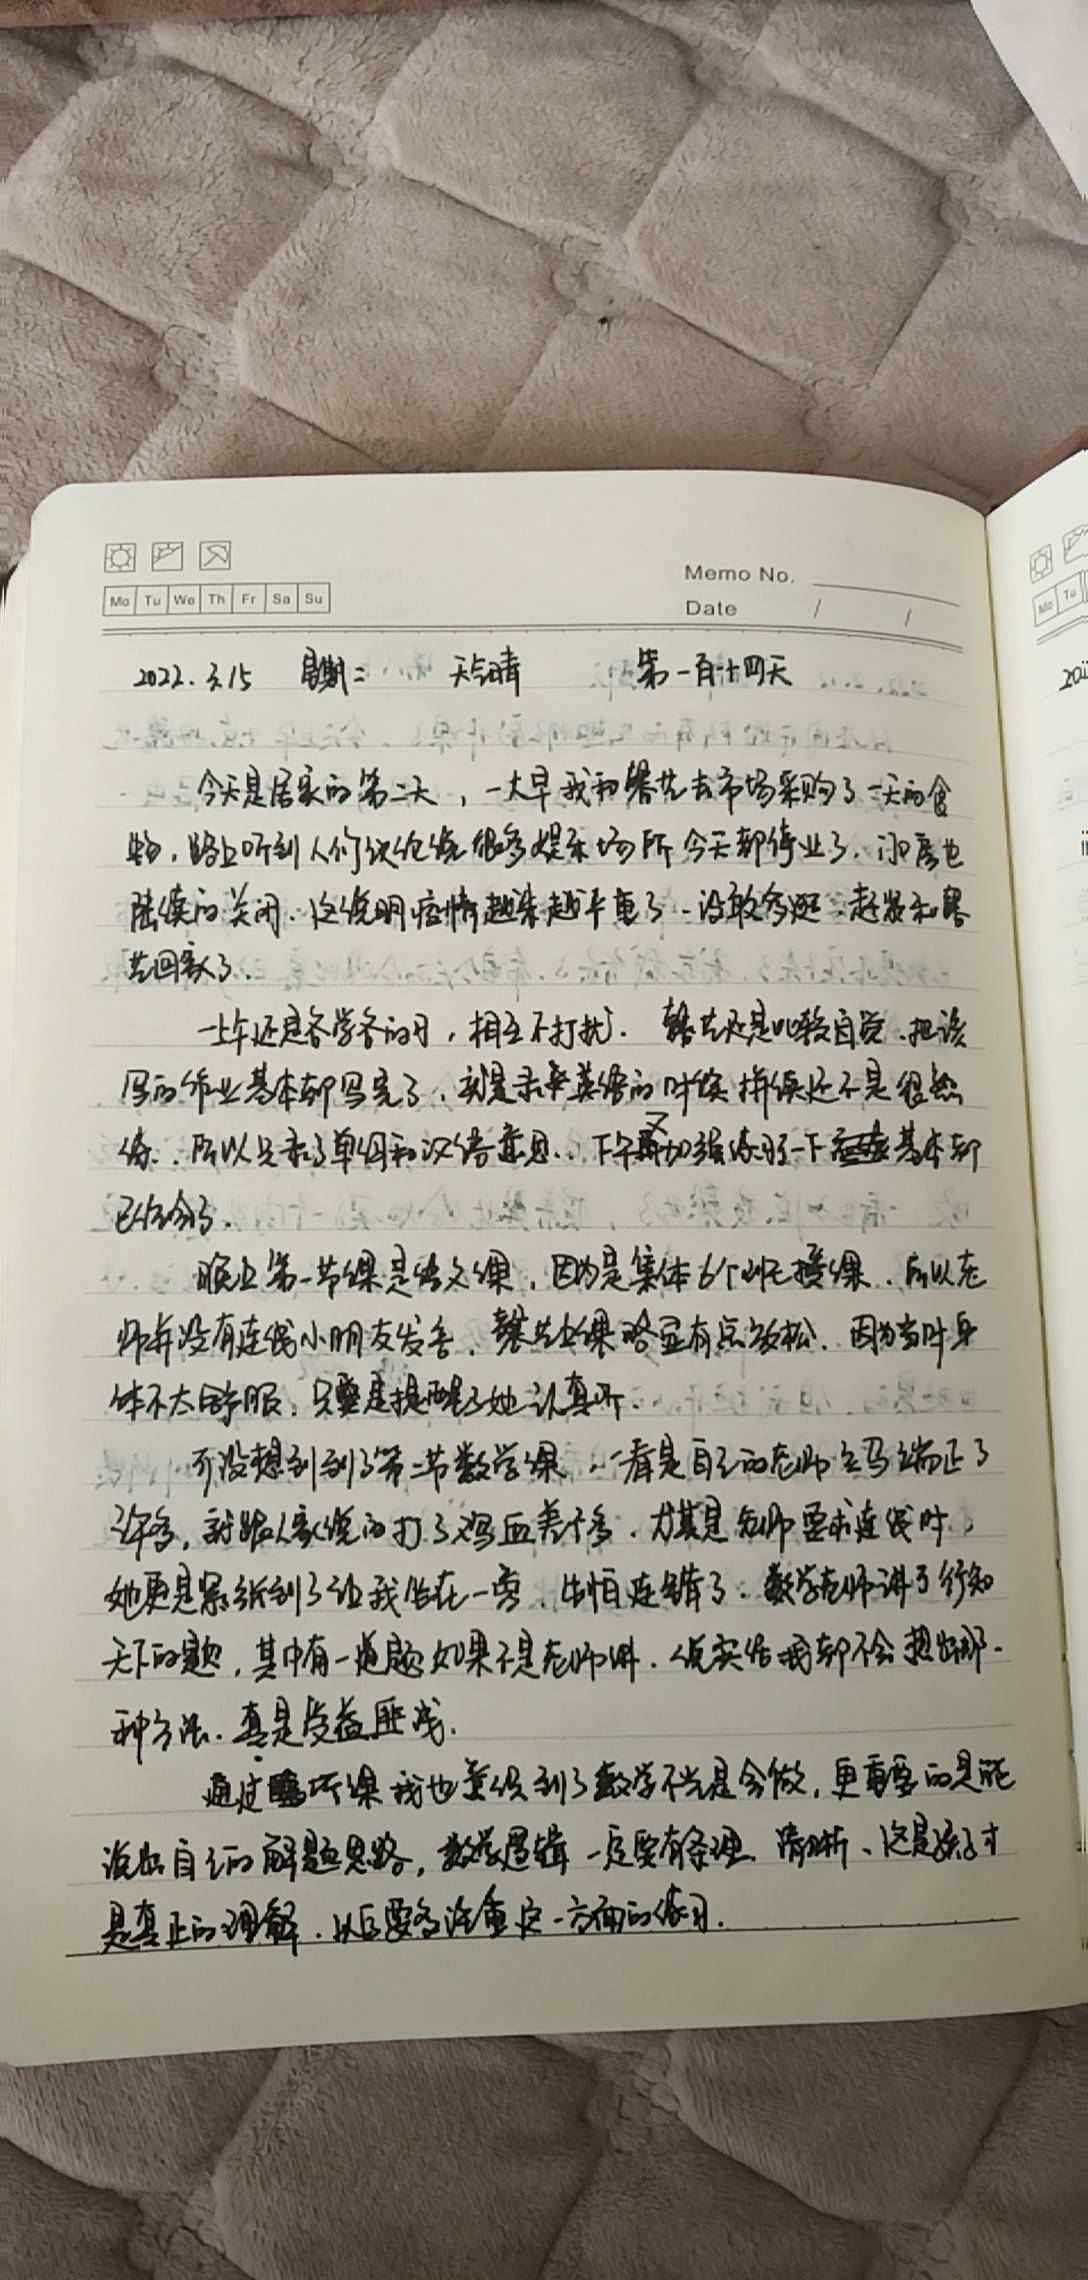 Memo No.
Mo Tu We Th Fr Sa Su
Date / /
2022.3.15 星期二 天气晴 第一百十四天
今天是居家的第二天，一大早我和馨艺去市场采购了一天的食
物，路上听到人们议论说很多娱乐场所今天都停业了，门店也
陆续的关闭，这说明疫情越来越严重了，没敢多逛，赶紧和馨
艺回家了。
上午还是各学各的习，相互不打扰。馨艺还是比较自觉，把该
写的作业基本都写完了，就是录单英语的时候拼读还不是很熟
练，所以只录了单词和汉语意思，下午又加强练习一下基本都
已经会了。
晚上第一节课是语文课，因为是集体6个班授课，所以老
师并没有连线小朋友发言，馨艺上课略显有点放松，因为当时身
体不太舒服，只是提醒了她认真听。
可没想到到了第二节数学课，一看是自己的老师立马端正了
许多，就跟人家说的打了鸡血差不多，尤其是老师要求连线时，
她更是紧张到了让我坐在一旁，生怕连错了。数学老师讲了行知
天下的题，其中有一道题如果不是老师讲，说实话我都不会想出那一
种方法，真是受益匪浅。
通过听课我也意识到了数学不光是会做，更重要的是能
说出自己的解题思路，数学逻辑一定要有条理、清晰，这是孩子才
是真正的理解，以后要多注重这一方面的练习。
Mo Tu